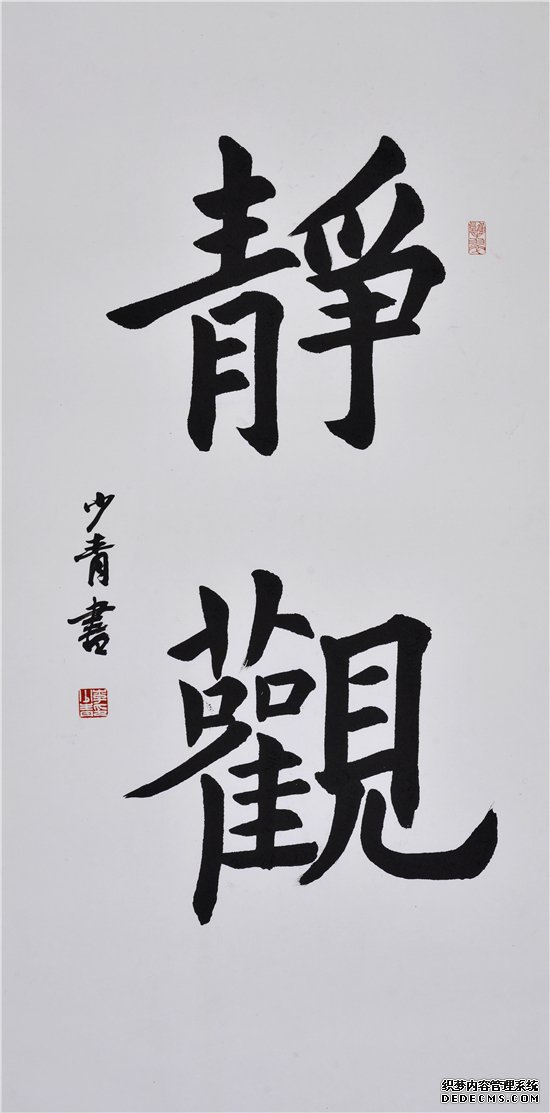 靜觀
少青書
织梦内容管理系统
DEDECMS.COM